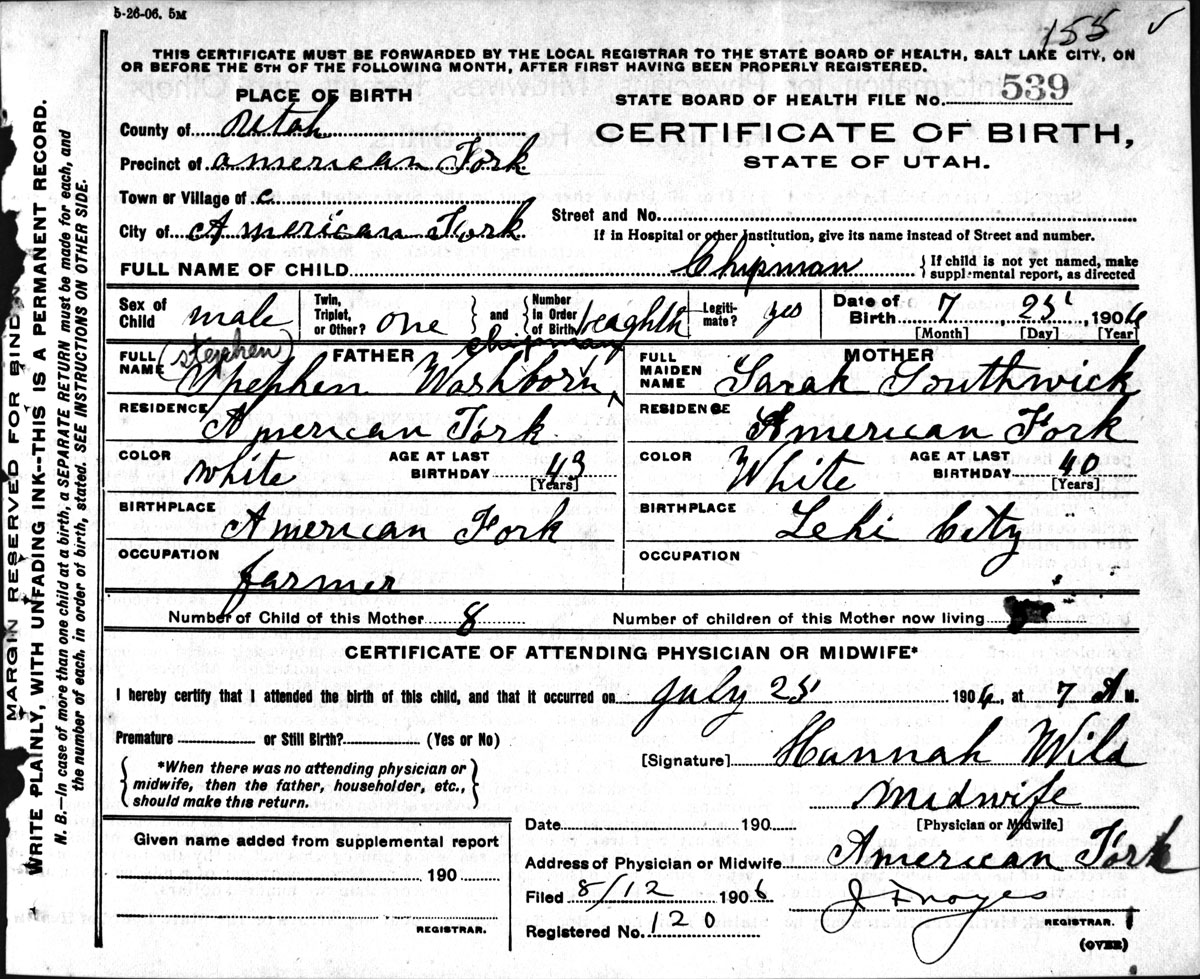 5-26-06. 5M
155 ✓
THIS CERTIFICATE MUST BE FORWARDED BY THE LOCAL REGISTRAR TO THE STATE BOARD OF HEALTH, SALT LAKE CITY, ON
OR BEFORE THE 5TH OF THE FOLLOWING MONTH, AFTER FIRST HAVING BEEN PROPERLY REGISTERED.
MARGIN RESERVED FOR BINDING
WRITE PLAINLY, WITH UNFADING INK--THIS IS A PERMANENT RECORD.
N. B.--In case of more than one child at a birth, a SEPARATE RETURN must be made for each, and
the number of each, in order of birth, stated. SEE INSTRUCTIONS ON OTHER SIDE.
PLACE OF BIRTH
County of Utah
Precinct of American Fork
Town or Village of c
City of American Fork
STATE BOARD OF HEALTH FILE No. 539
CERTIFICATE OF BIRTH,
STATE OF UTAH.
Street and No.
If in Hospital or other Institution, give its name instead of Street and number.
FULL NAME OF CHILD Chipman { If child is not yet named, make
supplemental report, as directed
Sex of Child male
Twin, Triplet, or Other? one
{ and } Number in Order of Birth eaghth
Legiti-mate? yes
Date of Birth 7 25 1906
[Month] [Day] [Year]
FATHER
FULL NAME (Stephen) Stephen Washborn ^ Chipman
RESIDENCE American Fork
COLOR white AGE AT LAST BIRTHDAY 43
[Years]
BIRTHPLACE American Fork
OCCUPATION farmer
MOTHER
FULL MAIDEN NAME Sarah Southwick
RESIDENCE American Fork
COLOR White AGE AT LAST BIRTHDAY 40
[Years]
BIRTHPLACE Lehi City
OCCUPATION
Number of Child of this Mother 8 Number of children of this Mother now living
CERTIFICATE OF ATTENDING PHYSICIAN OR MIDWIFE*
I hereby certify that I attended the birth of this child, and that it occurred on July 25 1906, at 7 A M.
Premature or Still Birth? (Yes or No)
{ *When there was no attending physician or
midwife, then the father, householder, etc.,
should make this return. }
[Signature] Hannah Wild
Midwife
[Physician or Midwife]
Given name added from supplemental report
190
REGISTRAR.
Date 190
Address of Physician or Midwife American Fork
Filed 8/12 1906
J F Noyes
REGISTRAR.
Registered No. 120
(OVER)